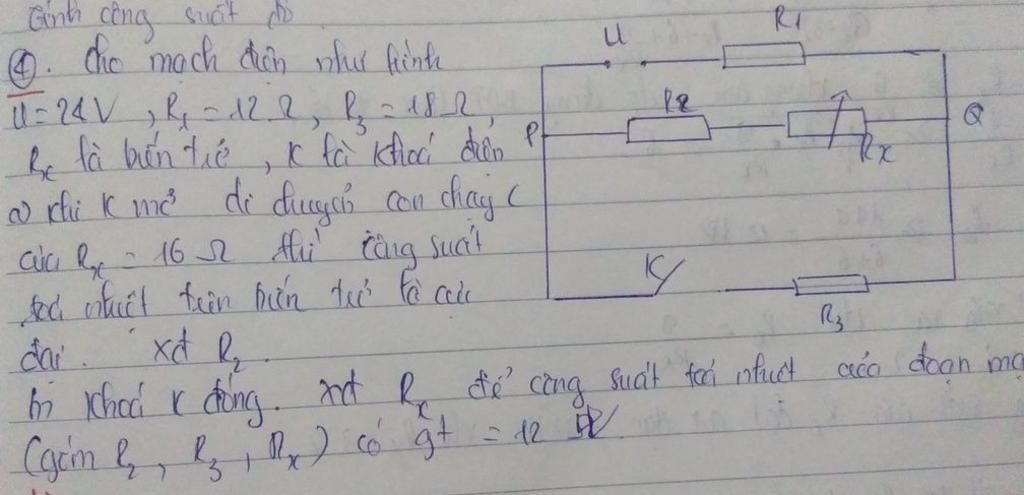 Tính công suất đó
④. Cho mạch điện như hình
U = 24V, R₁ = 12 Ω, R₃ = 18 Ω,
Rx là biến trở, K là khoá điện
a) khi K mở di chuyển con chạy C
của Rx = 16 Ω thì công suất
toả nhiệt trên biến trở là cực
đại. xđ R₂.
b) Khoá K đóng. xđ Rx để công suất toả nhiệt của đoạn mạ
(gồm R₂, R₃, Rx) có gt = 12 W
U
R1
P
R2
Rx
Q
K
R3